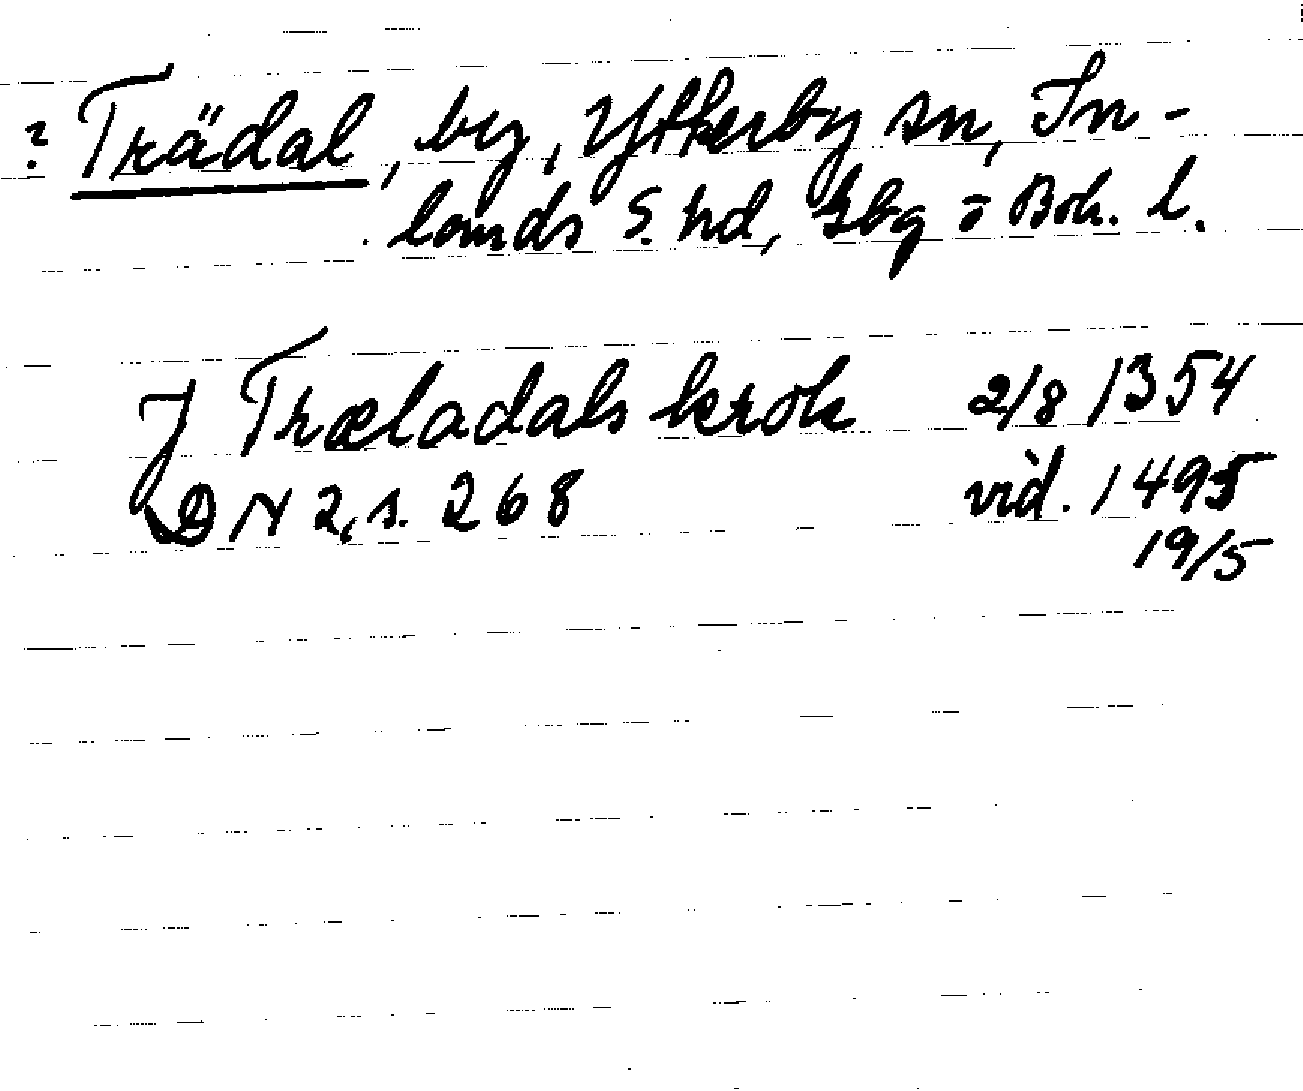 ? Trädal, by, Ytterby sn, In-
lands S. hd, Gbg o Boh. l.
J Træladals krok 2/8 1354
DN 2, s. 268 vid. 1495
19/5